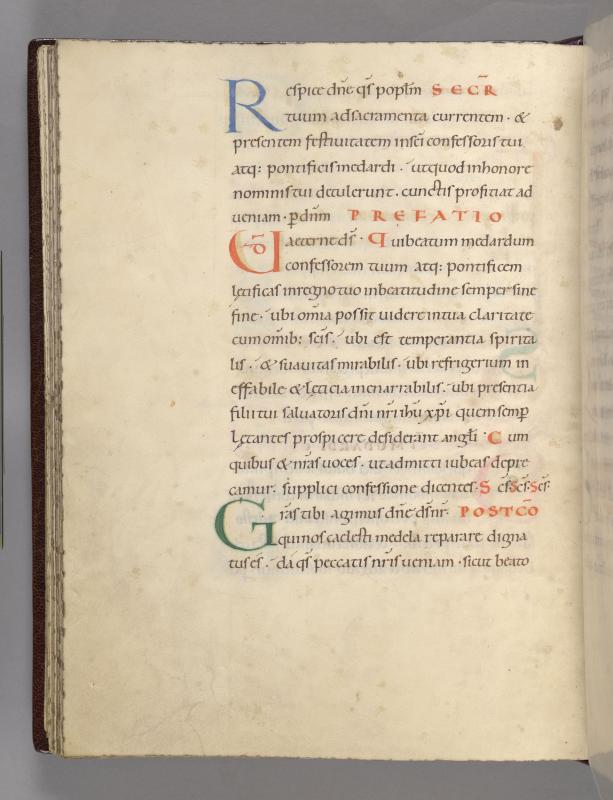 Respice dñe q̃s popl̃m SECR̃
tuum ad sacramenta currentem · &
presentem festiuitatem in sc̃i confessoris tui
atq: pontificis medardi · ut quod in honore
nominis tui detulerunt · cunctis proficiat ad
ueniam · p dñm PREFATIO
UD̃ aeterne ds̃ · Qui beatum medardum
confessorem tuum atq: pontificem
lętificas in regno tuo in beatitudine semper sine
fine · ubi om̃ia possit uidere in tua claritate
cum omĩb: sc̃is · ubi est temperantia spirita
lis · & suauitas mirabilis · ubi refrigerium in
effabile & lęticia inenarrabilis · ubi presentia
filii tui saluatoris dñi nr̃i ihũ xp̃i quem semp
lętantes prospicere desiderant angl̃i · Cum
quibus & nr̃as uoces · ut admitti iubeas depre
camur · supplici confessione dicentes · Sc̃s · Sc̃s · Sc̃s ·
Gr̃as tibi agimus dñe ds̃ nr̃ · POSTCÕ
qui nos caelesti medela reparare digna
tus es · da q̃s peccatis nr̃is ueniam · sicut beato